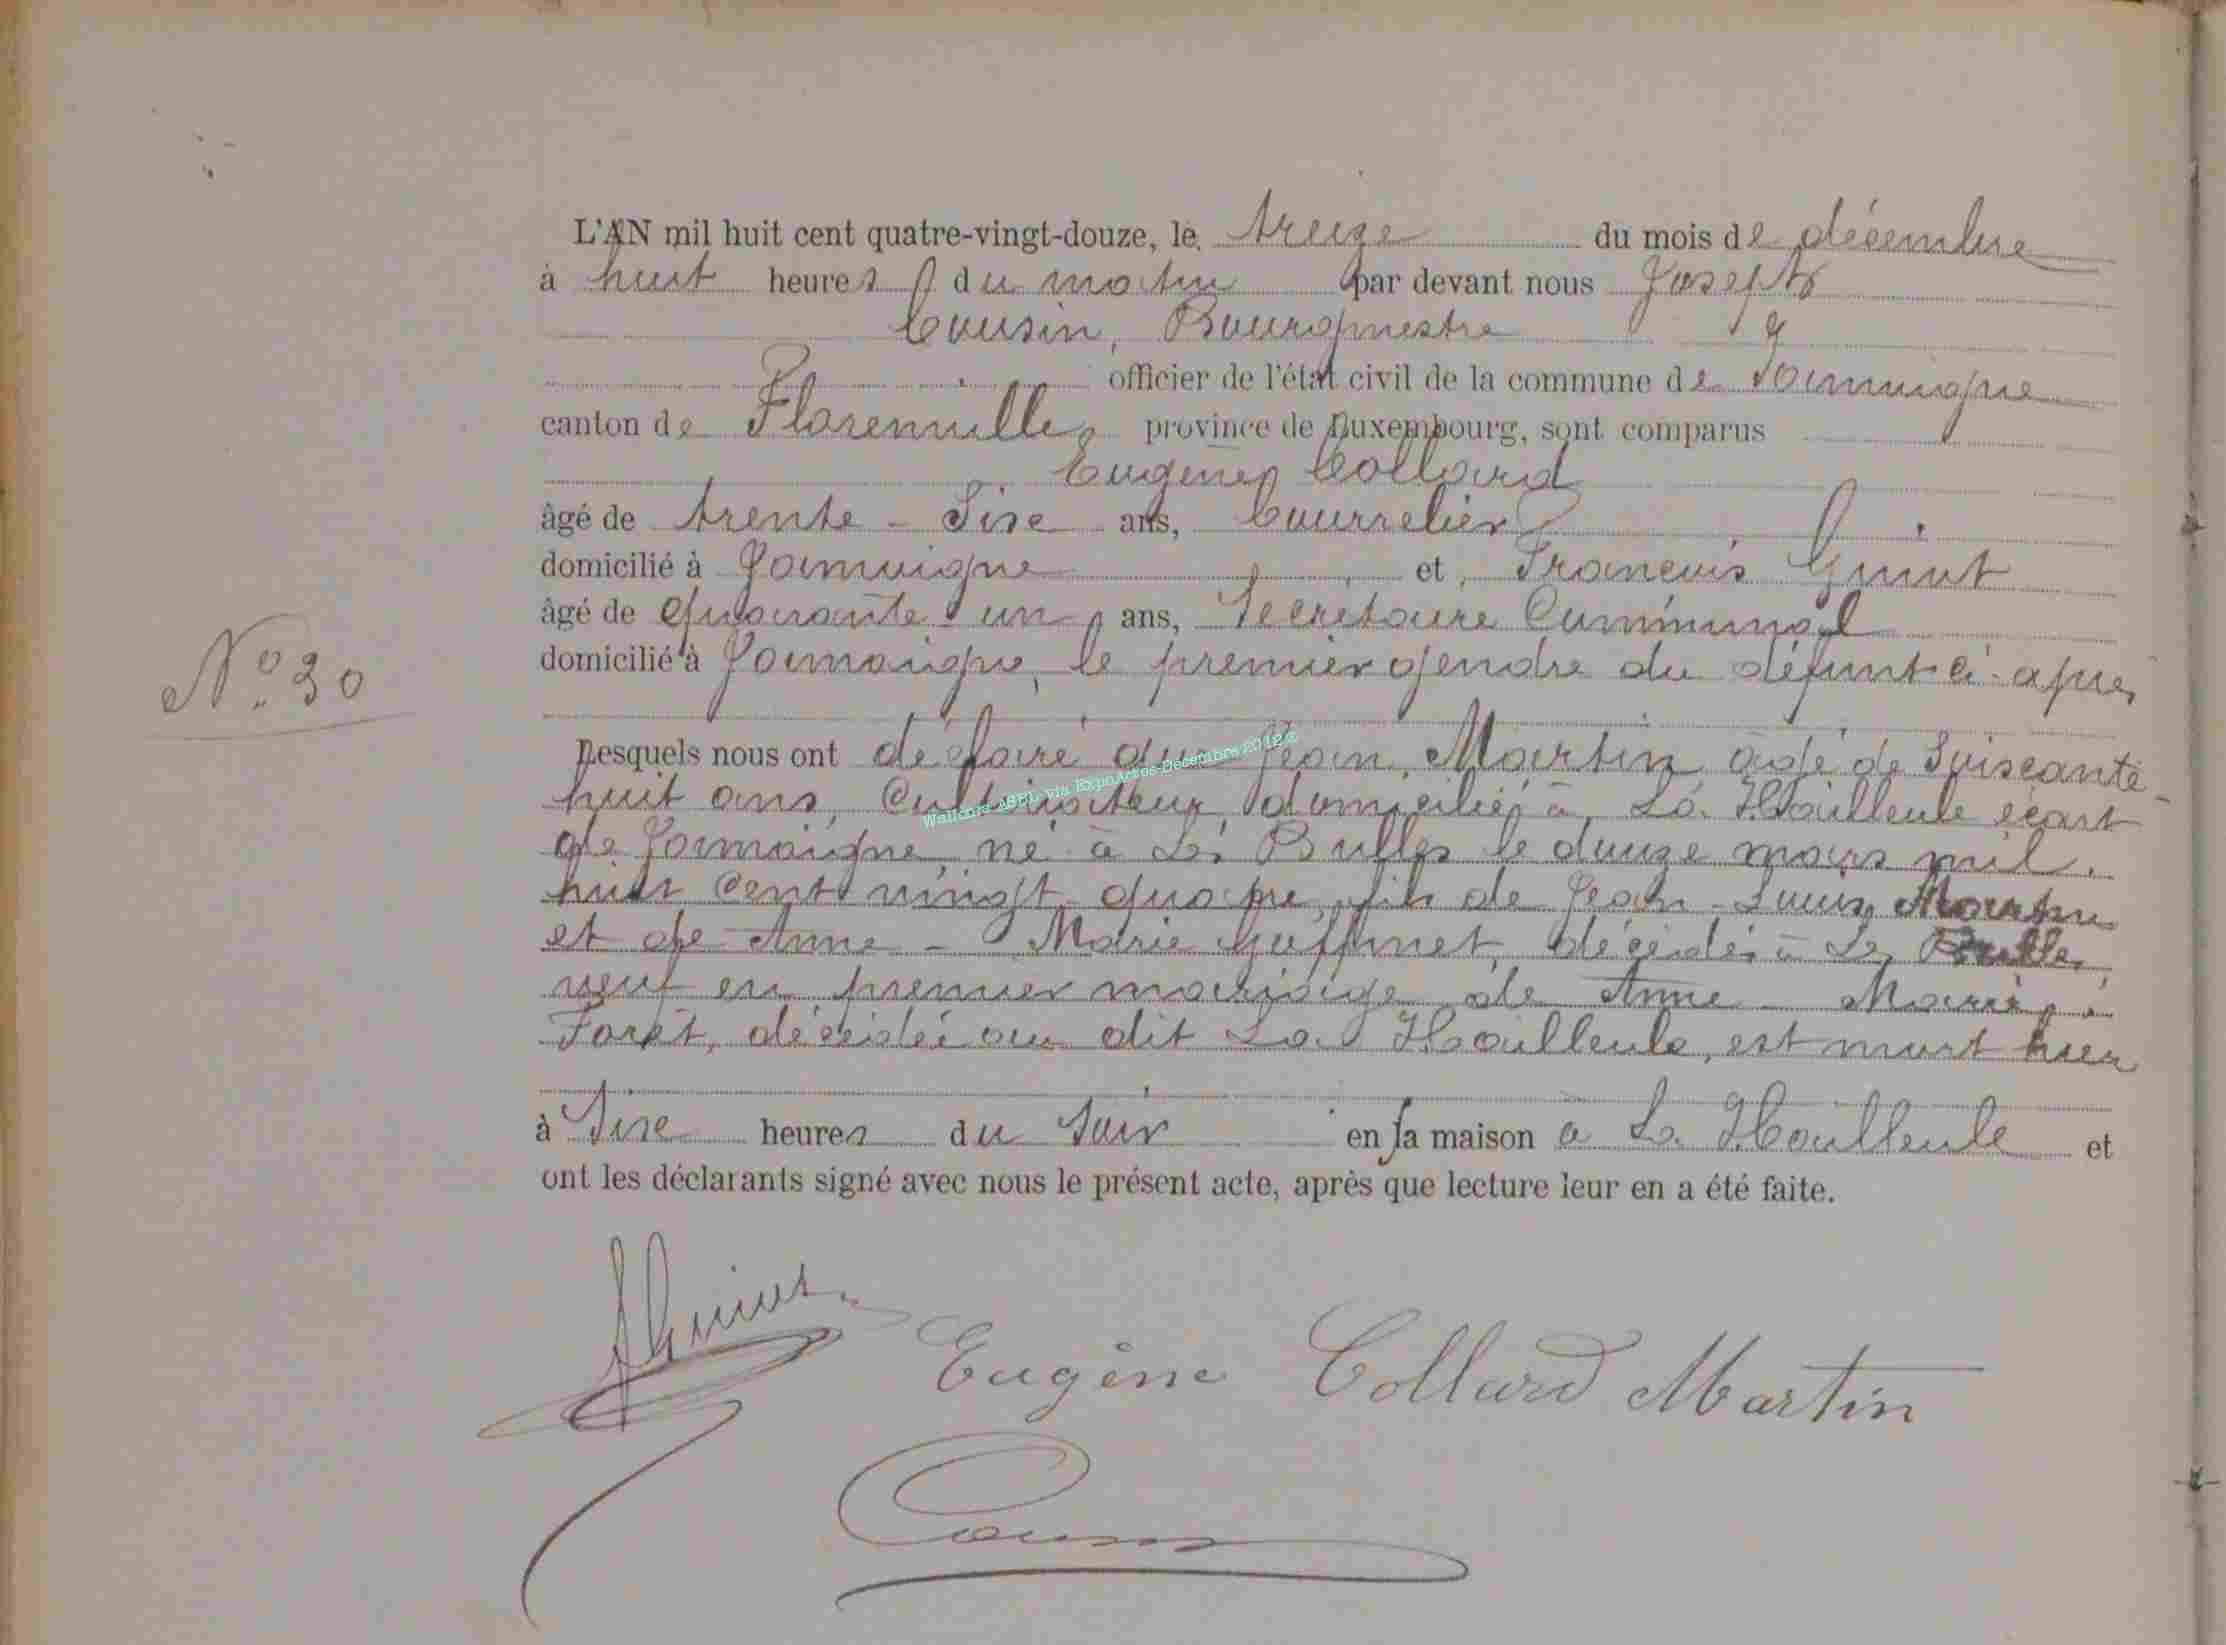 L'AN mil huit cent quatre-vingt-douze, le treize du mois de décembre
à huit heures du matin par devant nous Joseph
Cousin, Bourgmestre
officier de l'état civil de la commune de Jamoigne
canton de Florenville, province de Luxembourg, sont comparus
Eugène Collard
âgé de trente-Six ans, Bourrelier
domicilié à Jamoigne et François Guiot
âgé de quarante-un ans, Secrétaire Communal
domicilié à Jamoigne, le premier gendre du défunt ci-après
N° 30
Lesquels nous ont déclaré que Jean Martin âgé de Soixante-
huit ans, Cultivateur, domicilié à La Hailleule écart
de Jamoigne, né à Les Bulles le douze mars mil
huit cent vingt quatre, fils de Jean-Louis Martin
et de Anne-Marie Goffinet, décédés à Les Bulles,
veuf en premier mariage de Anne-Marie
Forêt, décédée au dit La Hailleule, est mort hier
à Six heures du Soir en sa maison à La Hailleule et
ont les déclarants signé avec nous le présent acte, après que lecture leur en a été faite.
Guiot
Eugène Collard Martin
Cousin
Wallonia ASBL via ExpoActes-Décembre 2012©